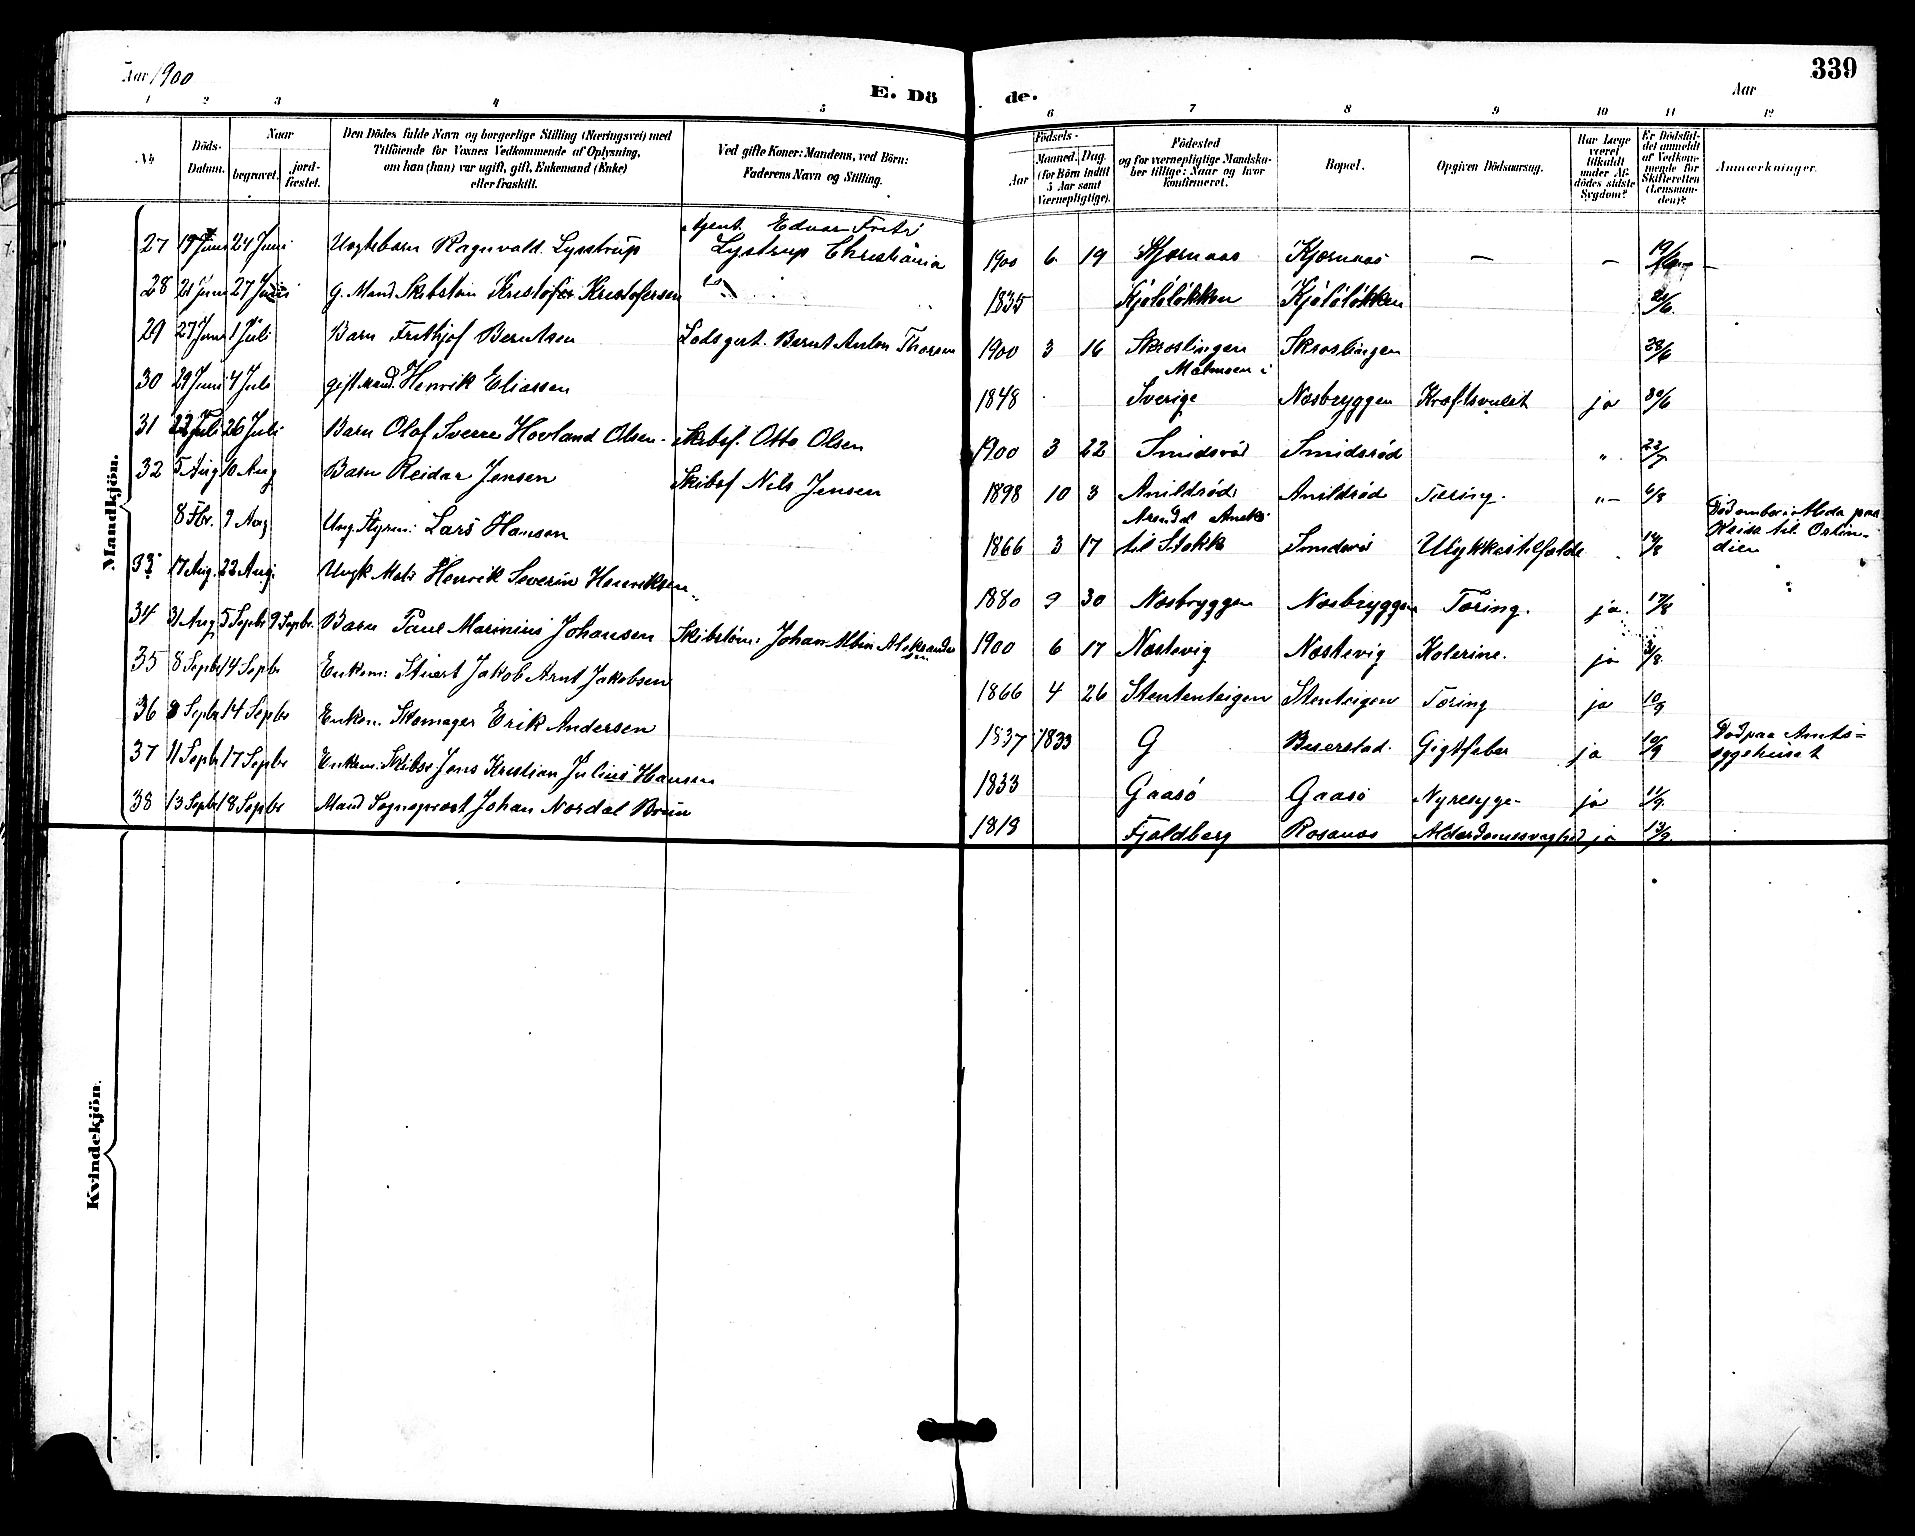 Aar 1900
E. Dö
1 2 3 4 5
№
Döds-
Datum.
Naar
begravet.
jord-
fæstet.
Den Dödes fulde Navn og borgerlige Stilling (Næringsvei) med
Tilföiende for Voxnes Vedkommende af Oplysning,
om han (hun) var ugift, gift, Enkemand (Enke)
eller fraskilt.
Ved gifte Koner: Mandens, ved Börn:
Faderens Navn og Stilling.
Mandkjön.
Agent Edvar Fritz
27 19 Juni 24 Juni Uægtebarn Ragnvald Lystrup Lystrup Christiania
28 21 Juni 27 Juni G. Mand Skibstøm Kristofer Kristofersen
29 27 Juni 1 Juli Barn Frithjof Berntsen Lodsgut. Bernt Anton Thorsen
30 29 Juni 4 Juli gift Mand. Henrik Eliassen
31 22 Juli 26 Juli Barn Olaf Sverre Hovland Olsen Skibsf. Otto Olsen
32 5 Aug 10 Aug Barn Reidar Jensen Skibsf Nils Jensen
8 Fbr. 9 Aug Ung. Styrm: Lars Hansen
33 17 Aug. 22 Aug. Ungk Mats Henrik Severin Henriksen
34 31 Aug 5 Septbr 9 Septbr. Barn Paul Marinius Johansen Skibstøm: Johan Albin Aleksander
sen
35 8 Septbr 14 Septbr Enkem: Stuert Jakob Arnt Jakobsen
36 8 Septbr 14 Septbr Enkem. Skomager Erik Andersen
37 11 Septbr 17 Septbr Enkem: Skibsf Jens Kristian Julius Hansen
38 13 Septbr 18 Septbr Mand Sogneprest Johan Nordal Brun
Kvindekjön.
339
de.
Aar
6 7 8 9 10 11 12
Födsels-
Aar
Maaned. Dag.
(for Börn indtil
5 Aar samt
Værnepligtige).
Födested
og for værnepligtige Mandska-
ber tillige: Naar og hvor
konfirmeret.
Bopæl.
Opgiven Dödsaarsag.
Har Læge
været
tilkaldt
under Af-
dödes sidste
Sygdom?
Er Dödsfal-
det anmeldt
af Vedkom-
mende for
Skifteretten
(Lensman-
den)?
Anmærkninger.
1900 6 19 Kjærnaas Kjærnaas — — 19/6 —
1835 Kjøløløkken Kjøløløkken 21/6
1900 3 16 Skroslingen Skroslingen 28/6
Malmøen i
1848 Sverige Næsbryggen Kræftsvulst ja 30/6
1900 3 22 Smidsrød Smidsrød " 22/7
1898 10 3 Anildrød Anildrød Tæring. "— 6/8
Arendal Aneks
1866 3 17 til Stokk Smidsrød Ulykkestilfælde 14/8 Død ombor i Alida paa
Reise til Ostin-
dien
1880 9 30 Næsbryggen Næsbryggen Tæring. ja. 17/8
1900 6 17 Næstevig Næstevig Kolerine. ja 31/8.
1866 4 26 Stententeigen Stenteigen Tæring ja 10/9
1837 1833 G Buerstad. Gigtfeber ja 10/9 Død paa Amts=
sygehuset
1833 Gaasø Gaasø Nyresyge- ja 11/9.
1819 Fjeldberg Rosanes Alderdomssvaghed ja 13/9.